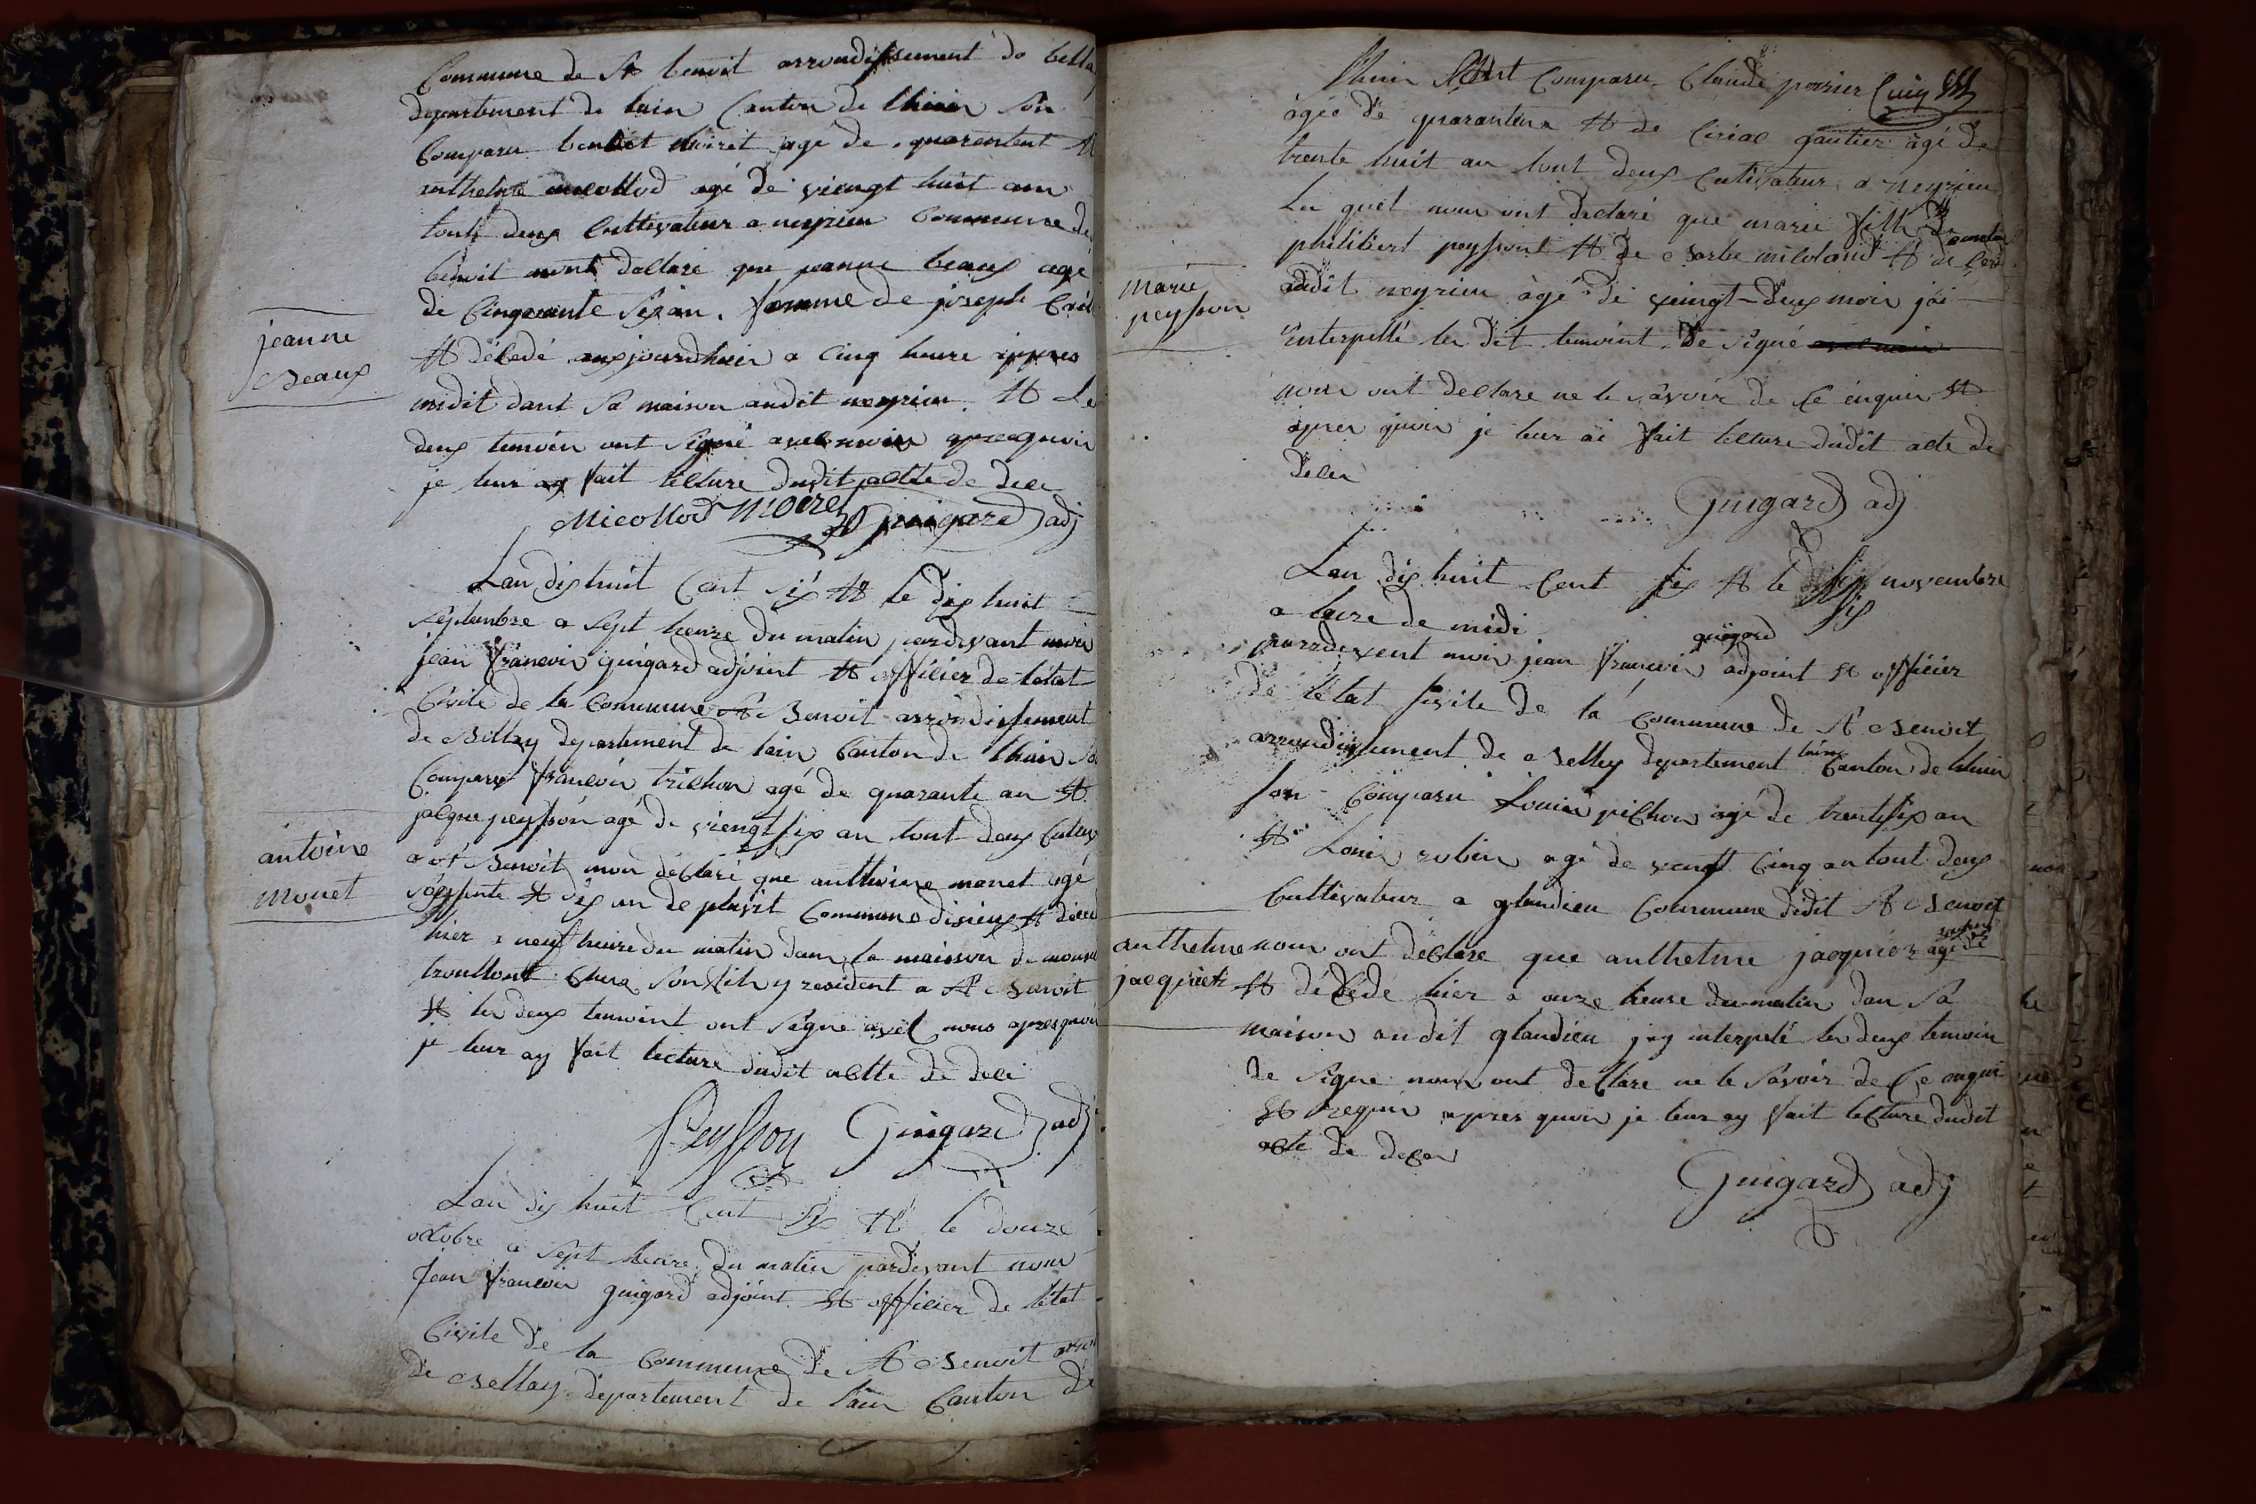 Commune de St benoit arrondissement de bella
departement de lain Canton de lhuin son
Comparu benoit moiret age de quarentent et
anthelme micollod agé de viengt huit ans
tout deux Cultivateur a neyrieu Commune de
benoit nont dallaré que janne beaux agé
de Cinquante six an. femme de joseph
et décédé aujourdhuin a Cinq heure appres
midit dant sa maison audit neyrieu. et Le
deux temoin ont signé avec moin apresquoin
je leur ay fait lecture dudit actte de dece
Micollod moiret guigard adj
jeanne
Beaux
Lan dix huit Cent six et le dix huit
septembre a sept heure du matin pardevant moin
jean francoin guigard adjoint et officier de letat
Civile de la Commune St Benoit arrondissement
de Belley departement de lain Canton de lhuin
Comparu francoin trichon agé de quarante an et
jacque peysson agé de viengt six an tout deux
a St Benoit non déclaré que anthoine monet agé
soixente et dix an de plusit Commune disieux et
hier a neuf heure du matin dans la maison de
Clura son fils y resident a St Benoit
et les deux temoint ont signé avec nous apresquoin
je leur ay fait lecture dudit actte de deces
antoine
monet
Peysson Guigard adj
Lan dix huit Cent six et le douze
octobre a sept heure du matin pardevant nous
Jean francoin guigard adjoint et officier de letat
Civile de la Commune de St Benoit
de Bellay departement de lain Canton de
lhuin Comparu Claude poirier
âgée de quarantena et de Ciriac gautier âgé de
trente huit an tout deux Cultivateur a neyrieu
Les quel nous ont déclaré que marie fille de
philibert peysson et de Barbe micoloud et
audit neyrieu âgé de veingt-deux moin jai
interpellé les dit temoint de signé
nous ont declare ne le savoir de ce enquis et
apres quoin je leur ai fait lecture dudit acte de
déces
marie
peysson
Guigard adj
Lan dix huit Cent six et le six novembre
six
a leure de midi
guigard
parrdevent moin jean francoin adjoint et officier
de létat sivile de la Commune de St Benoit
lain
arrondissement de Belley departement Canton de lhuin
son Comparu Louis pichon agé de trente six an
et Louis robin agé de vengt Cinq an tout deux
Cultivateur a glandieu Commune dedit St Benoit
nous ont déclare que anthelme jacquier agé de
et décédé hier a onze heure du matin dan sa
maison audit glandieu jay interpelé les deux temoin
de signe nous ont declare ne le savoir de ce enquis
et requis apres quoin je leur ay fait lecture dudit
acte de deces
anthelme
jacquier
Guigard adj